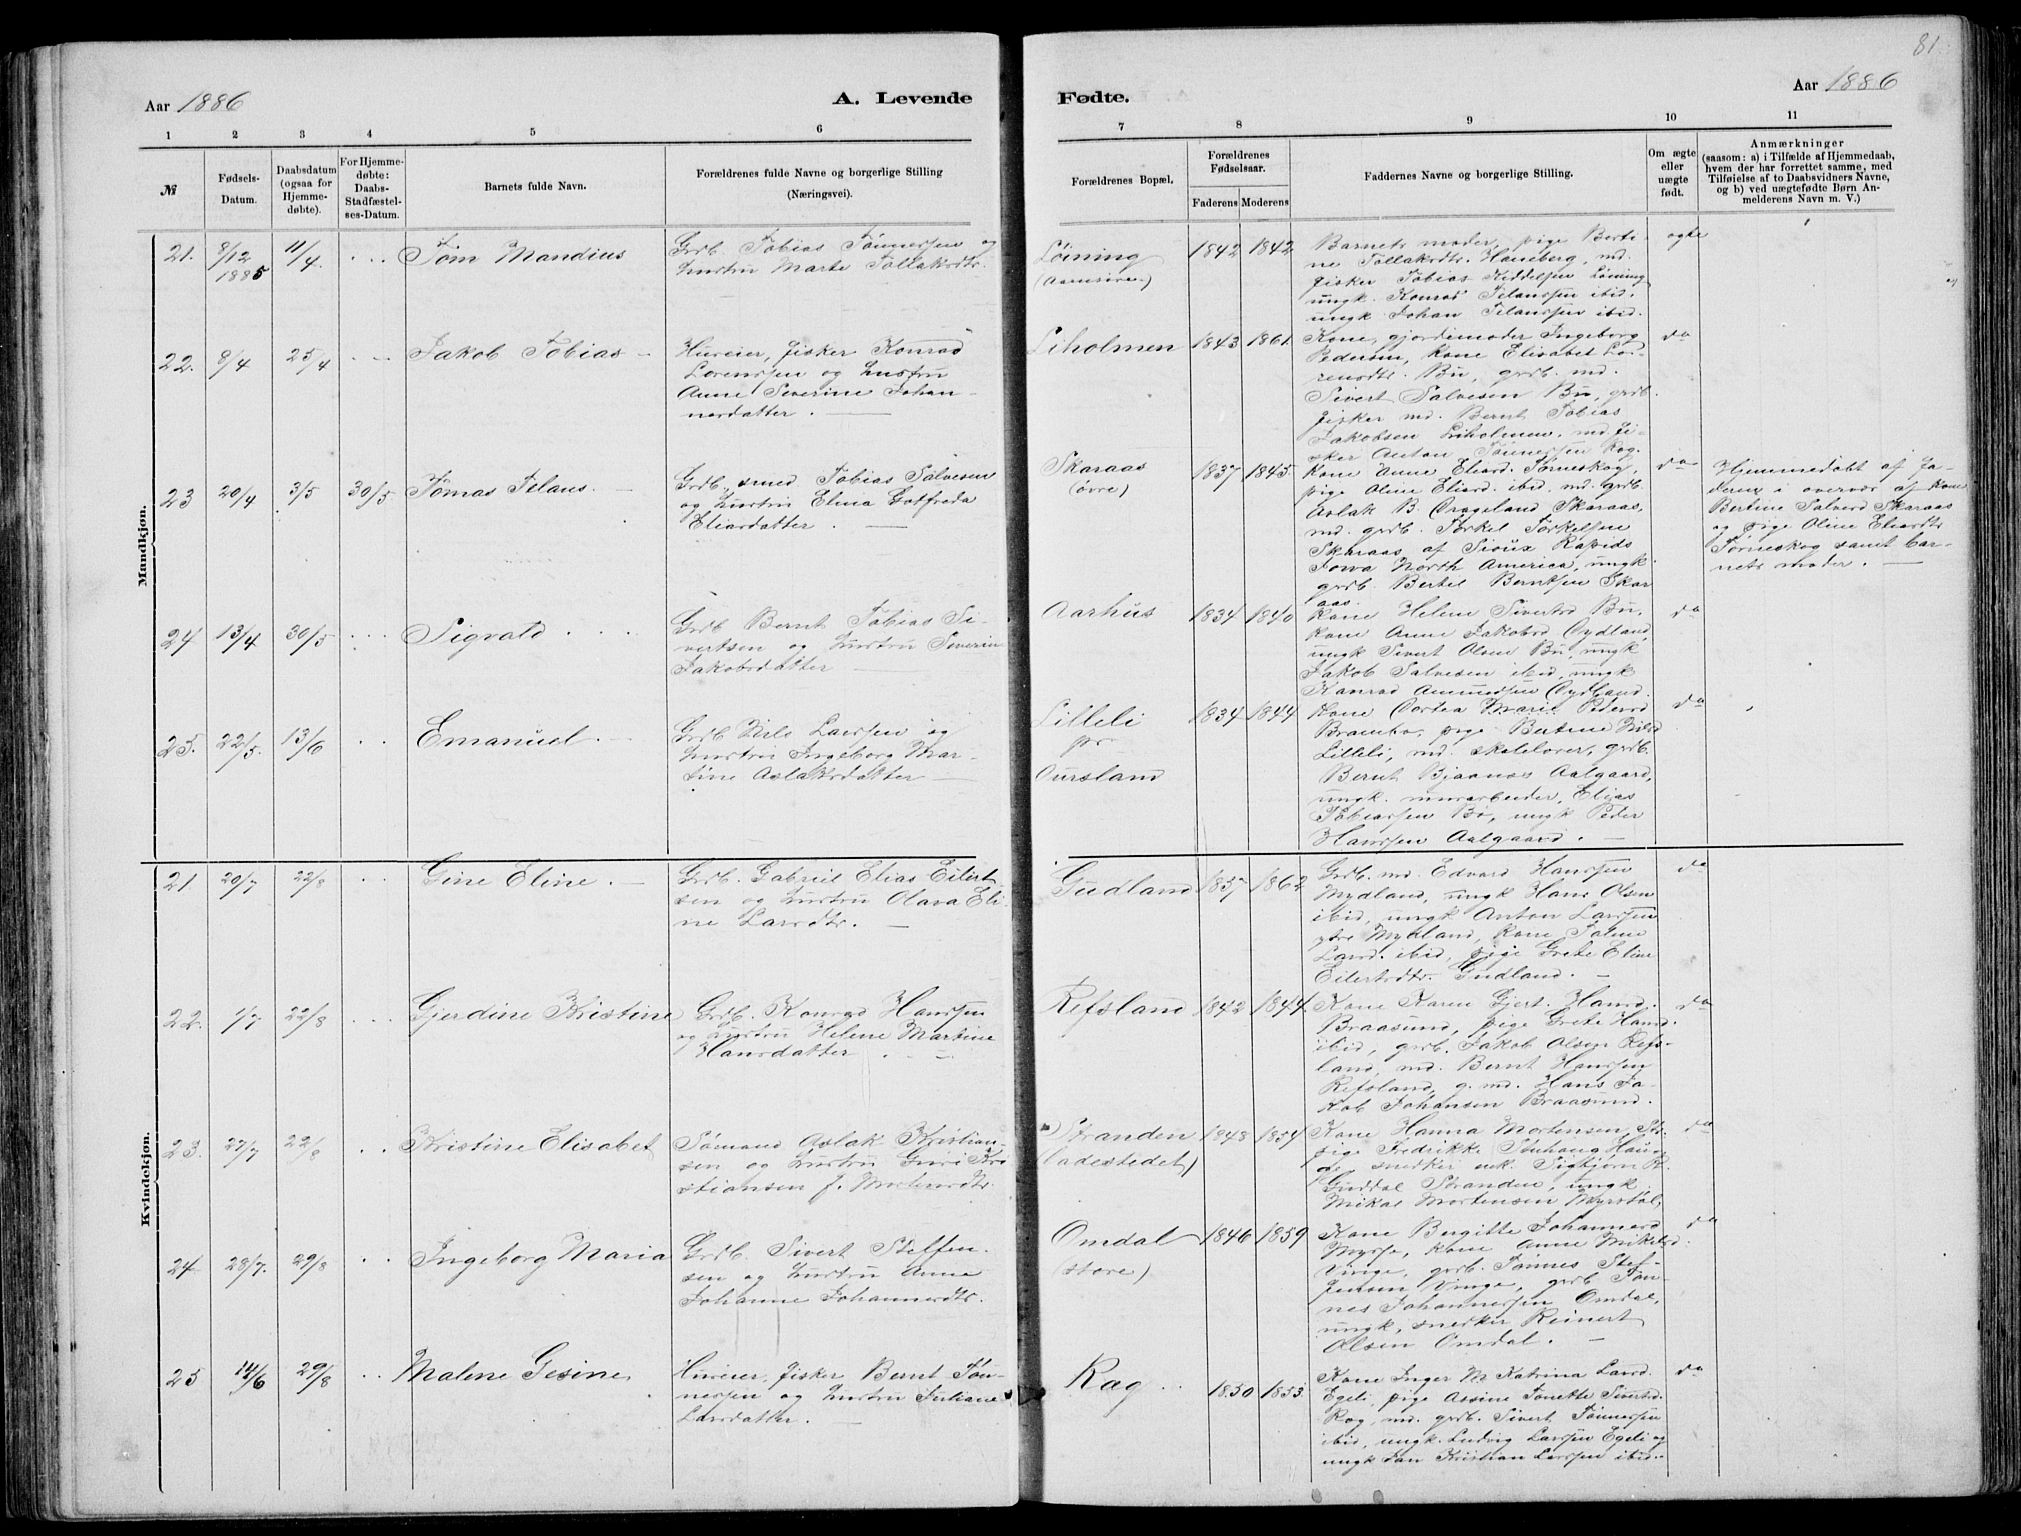 81
Aar 1886
A. Levende
Fødte.
Aar 1886
1 2 3 4 5 6 7 8 9 10 11
№
Fødsels-
Datum.
Daabsdatum
(ogsaa for
Hjemme-
døbte).
For Hjemme-
døbte:
Daabs-
Stadfæstel-
ses-Datum.
Barnets fulde Navn.
Forældrenes fulde Navne og borgerlige Stilling
(Næringsvei).
Forældrenes Bopæl.
Forældrenes
Fødselsaar.
Faderens Moderens
Faddernes Navne og borgerlige Stilling.
Om ægte
eller
uægte
født.
Anmærkninger
(saasom: a) i Tilfælde af Hjemmedaab,
hvem der har forrettet samme, med
Tilføielse af to Daabsvidners Navne,
og b) ved uægtefødte Børn An-
melderens Navn m. V.)
Mandkjøn.
21. 8/12 1885 11/4 Tom Mandius
Grdb. Tobias Tønnessen og
hustru Marte Tollaksdtr.
Løining
(Aamsire.)
1842 1842
Barnets moder, pige Berti-
ne Tollaksdtr. Haneberg, md.
fisker Tobias Kiddelsen Løining
ungk. Konrad Telaussen ibid.
ungk Johan Telaussen ibid.
ægte
22. 8/4 25/4 Jakob Tobias
Huseier, fisker Konrad
Lorenssen og hustru
Anne Severine Johan-
nesdatter.
Liholmen 1843 1861
Kone, gjordemoder Ingeborg
Pedersen, kone Elisabet Lo-
rensdtr. Bu, grdb. md.
Sivert Salvesen Bu, grdb.
fisker md. Bernt Tobias
Jakobsen Liholmen, md. fi-
sker Anton Tønnessen Rag.
do
23 20/4 3/5 30/5 Tomas Telaus
Grdb., smed Tobias Salvesen
og hustru Elina Gotfreda
Eliasdatter.
Skaraas
(øvre)
1837 1845
Kone Anne Eliasd. Tørneskog,
pige Oline Eliasd. ibid. md. grdb
Aslak B. Drageland Skaraas,
md. grdb. Torkel Torkelsen
Skaraas af Sioux Rapids
Iowa North America, ungk.
grdb. Bertel Berntsen Skar
aas.
do
Hjemmedøbt af fa-
deren i overvær af kone
Bertine Salvesd Skaraas
og pige Oline Eliasdtr
Tørneskog samt bar-
nets moder.
24 13/4 30/5 Sigvald
Grdb Bernt Tobias Si-
vertsen og hustru Severine
Jakobsdatter
Aarhus 1834 1840
Kone Helene Sivertsd Bu,
kone Anne Jakobsd Dydland,
ungk Sivert Olsen Bu, ungk
Jakob Salvesen ibid, ungk
Konrad Amundsen Dydland.
do
25. 22/5. 13/6 Emanuel
Grdb Nils Larssen og
hustru Ingeborg Mar-
tine Aslaksdatter
Lilleli
pr
Oursland
1834 1844
Kone Dortea Marie Pedersd
Brambo, pige Bertine Nilsd
Lilleli, md. skolelærer, grdb.
Bernt Bjaanes Aalgaard,
ungk. murarbeider, Elias
Tobiassen Bø, ungk Peder
Hanssen Aalgaard.
do
Kvindekjøn.
21 20/7 22/8 Gine Eline
Grdb. Gabriel Elias Eilert
sen og hustru Olava Eli
ne Larsdtr.
Gudland 1857 1862
Grdb. md. Edvard Hanssen
Mydland, ungk Hans Olsen
ibid, ungk Anton Larssen
ytre Mydland, kone Salme
Larsd. ibid, pige Grete Eline
Eilertsdtr. Gudland.
do
22. 1/7 22/8 Gjerdine Kristine
Grdb. Konrad Hanssen
og hustru Helene Martine
Hansdatter
Refsland 1842 1844
Kone Karen Gjert. Hansd.
Braasund, pige Grete Hansd.
ibid, grdb. Jakob Olsen Refs-
land, md. Bernt Hanssen
Refsland, g. md. Hans Ja-
kob Johansen Braasund.
do
23. 27/7 22/8 Kristine Elisabet
Sømand Aslak Kristian
sen og hustru Guri Kri
stiansen f. Mortensdtr.
Stranden
(ladestedet)
1848 1854
Kone Hanna Mortensen St.
pige Fredrikke Stuhaug Haug-
de snedker enk. Sigbjørn R.
Guddal Stranden, ungk
Mikal Mortensen Myrstøl.
do
24 28/7. 29/8 Ingeborg Maria
Grdb. Sivert Steffen-
sen og hustru Anna
Johanne Johannesdtr.
Omdal
(store)
1846 1859
Kone Bergitte Johannesd
Myrse, kone Anne Mikelsd.
Vinge, grdb. Tønnes Stef-
fensen Vinge, grdb Tøn-
nes Johannessen Omdal,
ungk, snedker Reinert
Olsen Omdal.
do
25 14/6 29/8 Malene Gesine
Huseier, fisker Bernt Tøn-
nessen og hustru Juliane
Larsdatter.
Rag 1850 1853
Kone Inger M Katrina Larsd.
Egeli, pige Assine Tonette Sivertsd.
Rag, md. grdb. Sivert Tønnessen
ibid, ungk. Ludvig Larssen Egeli og
ungk Jan Kristian Larssen ibid.
do